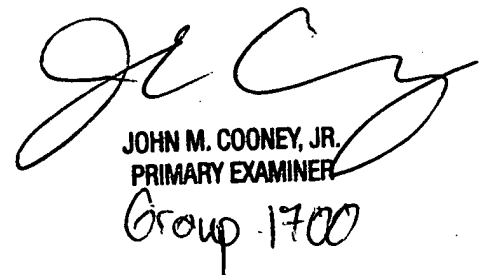 JOHN M. COONEY, JR.
PRIMARY EXAMINER
Group 1700